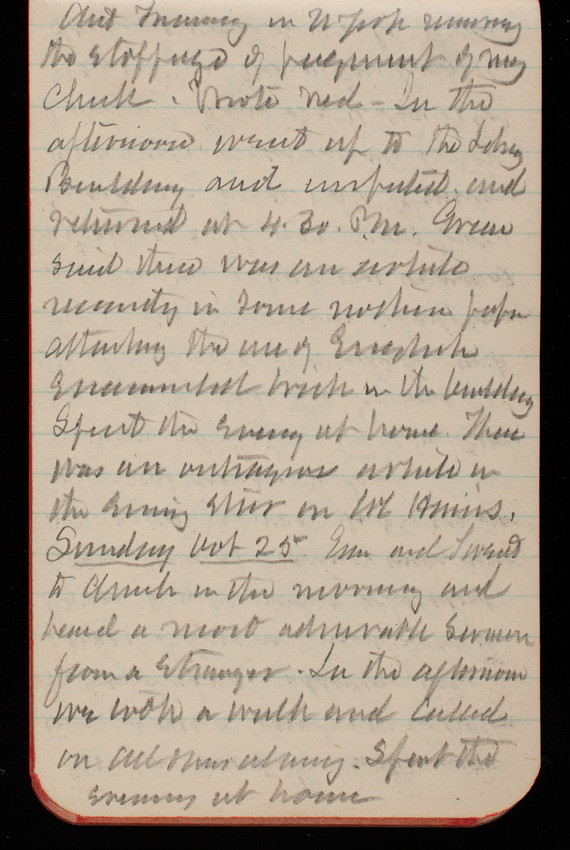 the stoppage of payment of my
check. Wrote Ned - In the
afternoon went up to the Lbry
Building and inspected and
returned at 4.30. P.M. Green
said there was an article
recently in some northern paper
attacking the use of English
Enamelled brick in the building
Spent the evening at home. There
was an outrageous article in
the Evening Star on Col
Sunday Oct 25 Em and I went
to Church in the morning and
heard a most admirable sermon
from a stranger. In the afternoon
we took a walk and called
on Spent the
evening at home